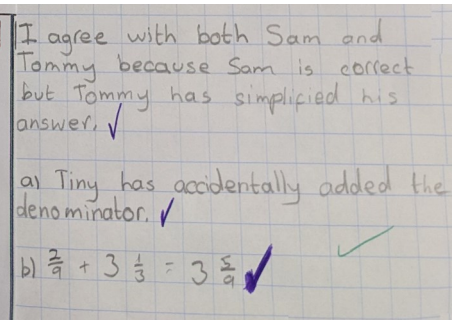 I agree with both Sam and
Tommy because Sam is correct
but Tommy has simplicied his
answer. ✓
a) Tiny has accidentally added the
denominator. ✓
b) 2/9 + 3 1/3 = 3 5/9 ✓